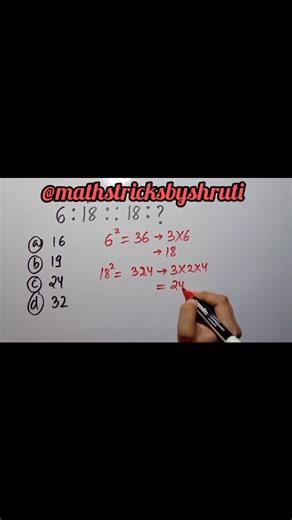 @mathstricksbyshruti
6 : 18 :: 18 : ?
(a) 16
(b) 19
(c) 24
(d) 32
6² = 36 → 3×6
→ 18
18² = 324 → 3×2×4
= 24